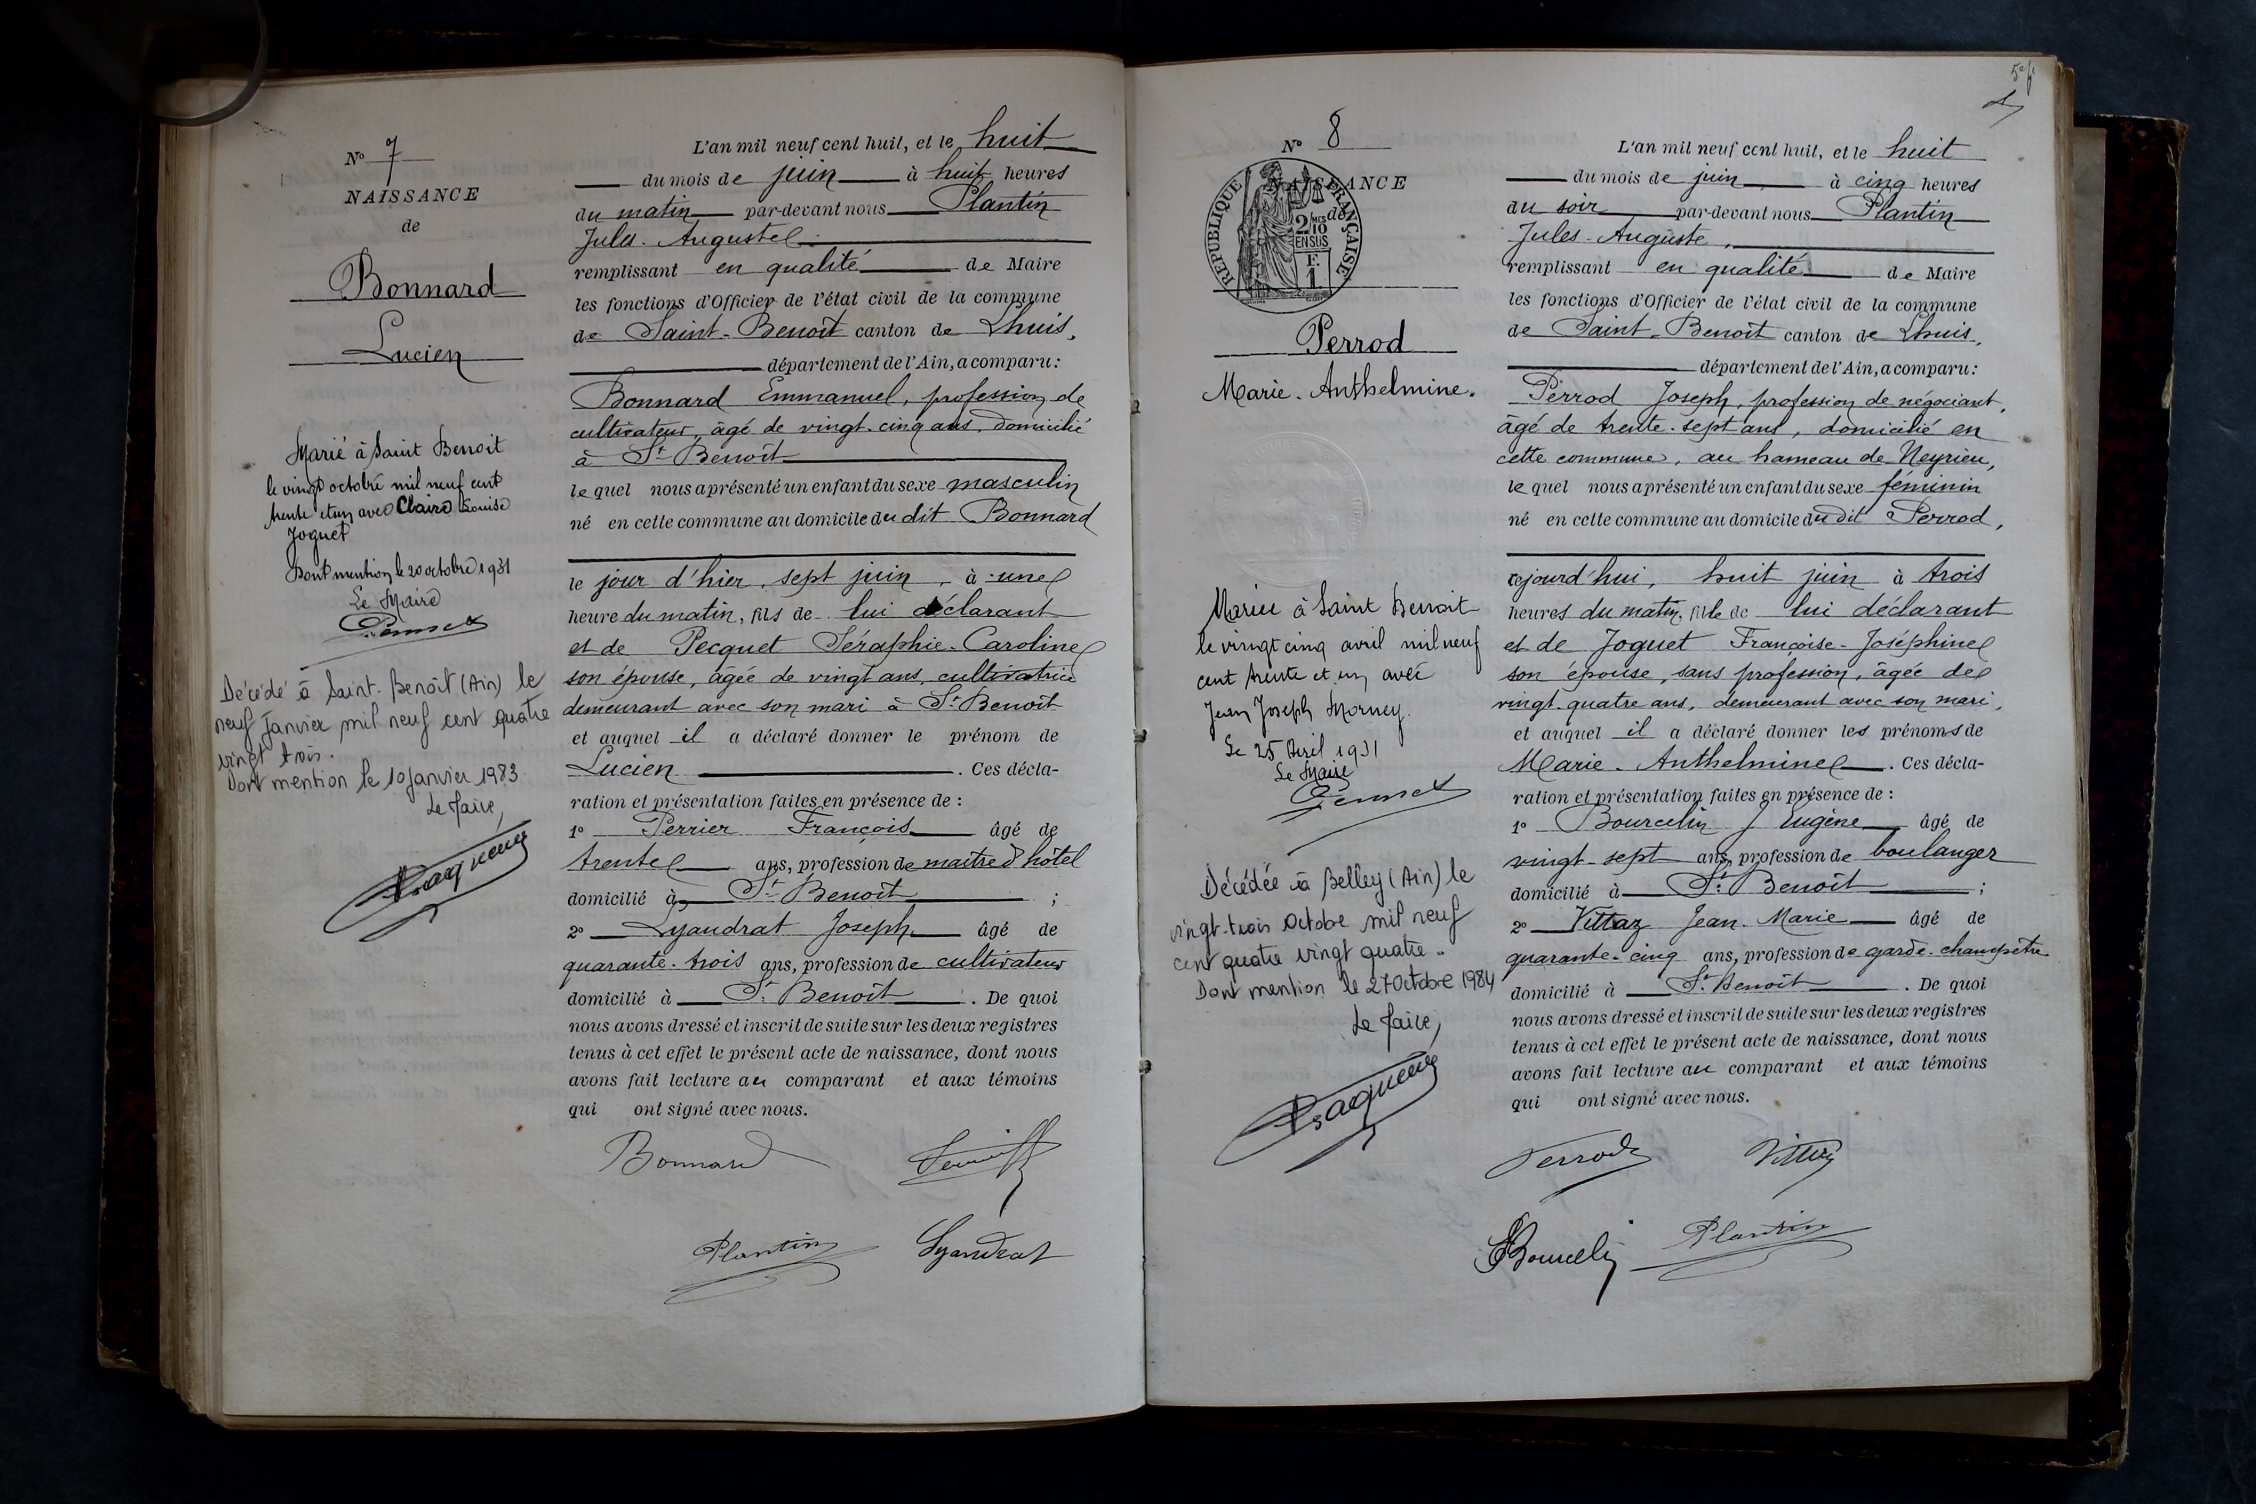 Nº 7
NAISSANCE
de
Bonnard
Lucien
Marié à Saint Benoit
le vingt octobre mil neuf cent
trente et un avec Claire Louise
Joguet
Dont mention le 20 octobre 1931
Le Maire
Décédé à Saint-Benoît (Ain) le
neuf Janvier mil neuf cent quatre
vingt trois.
Dont mention le 10 janvier 1983.
Le Maire,
L'an mil neuf cent huit, et le huit
du mois de juin à huit heures
du matin par-devant nous Plantin
Jules-Auguste
remplissant en qualité de Maire
les fonctions d'Officier de l'état civil de la commune
de Saint-Benoît canton de Lhuis,
département de l'Ain, a comparu:
Bonnard Emmanuel, profession de
cultivateur, âgé de vingt-cinq ans, domicilié
à St Benoît
lequel nous a présenté un enfant du sexe masculin
né en cette commune au domicile du dit Bonnard
le jour d'hier, sept juin, à une
heure du matin, fils de lui déclarant
et de Pecquet Séraphie-Caroline
son épouse, âgée de vingt ans, cultivatrice
demeurant avec son mari à St Benoît
et auquel il a déclaré donner le prénom de
Lucien . Ces décla-
ration et présentation faites en présence de :
1º Perrier François âgé de
trente ans, profession de maître d'hôtel
domicilié à St Benoît ;
2º Lyaudrat Joseph âgé de
quarante-trois ans, profession de cultivateur
domicilié à St Benoît . De quoi
nous avons dressé et inscrit de suite sur les deux registres
tenus à cet effet le présent acte de naissance, dont nous
avons fait lecture au comparant et aux témoins
qui ont signé avec nous.
Bonnard
Plantin Lyaudrat
Nº 8
NAISSANCE
de
RÉPUBLIQUE FRANÇAISE
2/10 MES
EN SUS
F.
1
Perrod
Marie-Anthelmine.
Mariée à Saint Benoit
le vingt cinq avril mil neuf
cent trente et un avec
Jean Joseph Mornay.
Le 25 Avril 1931
Le Maire
Décédée à Belley (Ain) le
vingt-trois Octobre mil neuf
cent quatre vingt quatre.
Dont mention le 27 Octobre 1984
Le Maire,
L'an mil neuf cent huit, et le huit
du mois de juin à cinq heures
du soir par-devant nous Plantin
Jules-Auguste,
remplissant en qualité de Maire
les fonctions d'Officier de l'état civil de la commune
de Saint-Benoît canton de Lhuis,
département de l'Ain, a comparu:
Perrod Joseph, profession de négociant,
âgé de trente-sept ans, domicilié en
cette commune, au hameau de Neyrieu,
lequel nous a présenté un enfant du sexe féminin
né en cette commune au domicile du dit Perrod,
cejourd'hui, huit juin à trois
heures du matin, fille de lui déclarant
et de Joguet Françoise-Joséphine
son épouse, sans profession, âgée de
vingt-quatre ans, demeurant avec son mari,
et auquel il a déclaré donner les prénoms de
Marie-Anthelmine . Ces décla-
ration et présentation faites en présence de :
1º Bourcelin J Eugène âgé de
vingt-sept ans, profession de boulanger
domicilié à St Benoît ;
2º Vittaz Jean-Marie âgé de
quarante-cinq ans, profession de garde-champêtre
domicilié à St Benoît . De quoi
nous avons dressé et inscrit de suite sur les deux registres
tenus à cet effet le présent acte de naissance, dont nous
avons fait lecture au comparant et aux témoins
qui ont signé avec nous.
Perrod Vittaz
Bourcelin Plantin